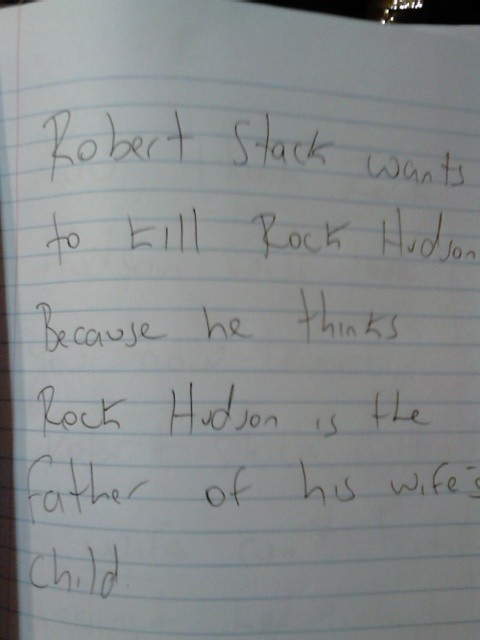 Robert Stack wants
to kill Rock Hudson
Because he thinks
Rock Hudson is the
father of his wife's
child.